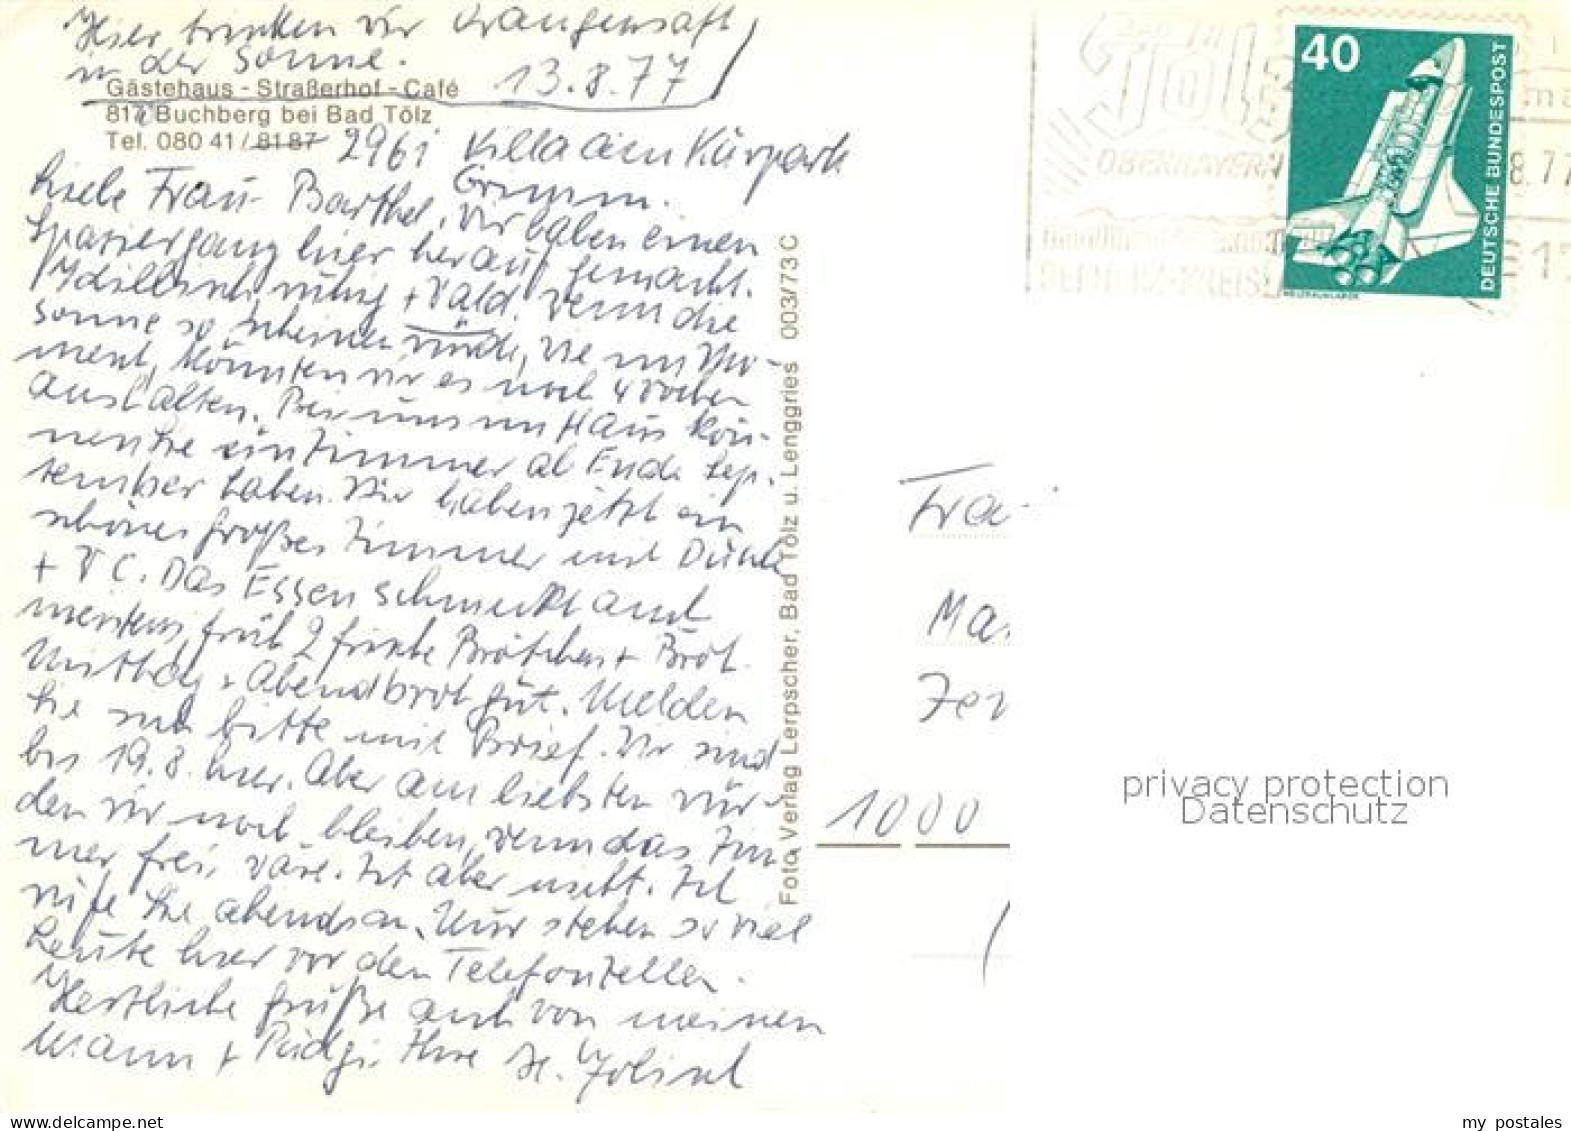 Hier trinken wir Orangensaft
in der Sonne.
13.8.77
Gästehaus - Straßerhof - Café
817 Buchberg bei Bad Tölz
Tel. 080 41/8187 2961 Villa am Kurpark
Grimm.
Liebe Frau Barthel, Wir haben einen
Spaziergang hier herauf gemacht.
Idyllisch, ruhig + Wald. Wenn die
Sonne so scheinen würde, wie im Mo-
ment, könnten wir es noch 4 Wochen
aushalten. Bei uns im Haus kön-
nen Sie ein Zimmer ab Ende Sep-
tember haben. Wir haben jetzt ein
schönes großes Zimmer mit Dusche
+ WC. Das Essen schmeckt auch
meistens, früh 2 frische Brötchen + Brot.
Mittag + Abendbrot gut. Melden
Sie sich bitte mit Brief. Wir sind
bis 19.8. hier. Aber am liebsten wür-
den wir noch bleiben, wenn das Zim-
mer frei wäre. Ist aber nicht. Ich
rufe Sie abends an. Nur stehen so viel
Leute hier vor den Telefonzellen.
Herzliche Grüße auch von meinen
Mann + Ihre H.
Foto Verlag Lerpscher, Bad Tölz u. Lenggries 003/73 C
Bad Tölz
OBERBAYERN
40
DEUTSCHE BUNDESPOST
8.77
Frau
Ma
1000
privacy protection
Datenschutz
my_postales